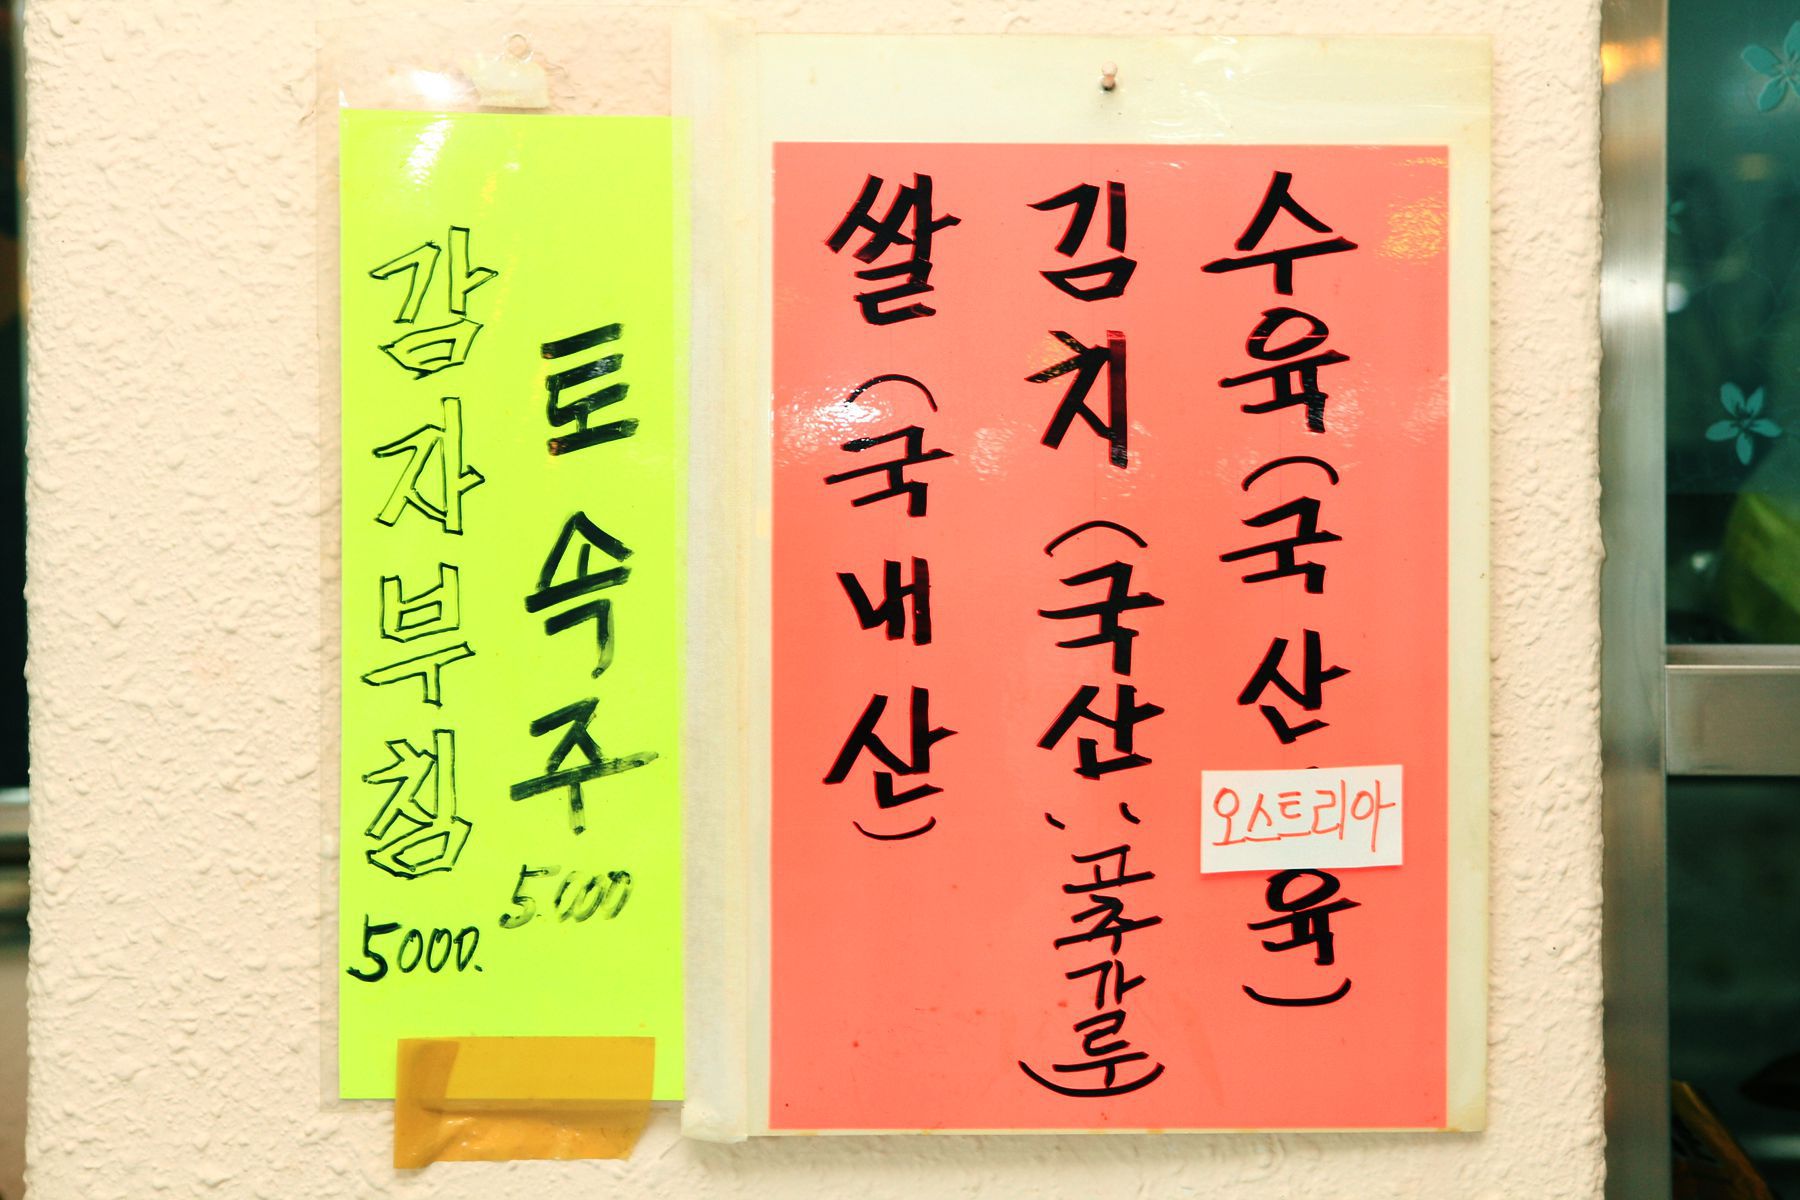 토속주
5.000
감자부침
5000.
수육(국산
오스트리아
육)
김치(국산, 고추가루)
쌀(국내산)